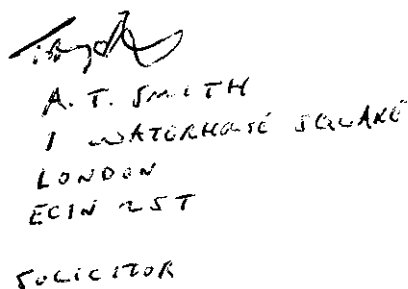 A. T. SMITH
1 WATERHOUSE SQUARE
LONDON
EC1N 2ST
SOLICITOR